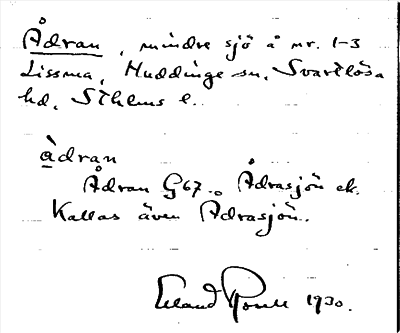 Ådran, mindre sjö å nr. 1-3
Lissma, Huddinge sn, Svartlösa
hd, Sthlms l.
àdran
Ådran G67. Ådrasjön ek.
Kallas även Ådrasjön.
Erland 1930.